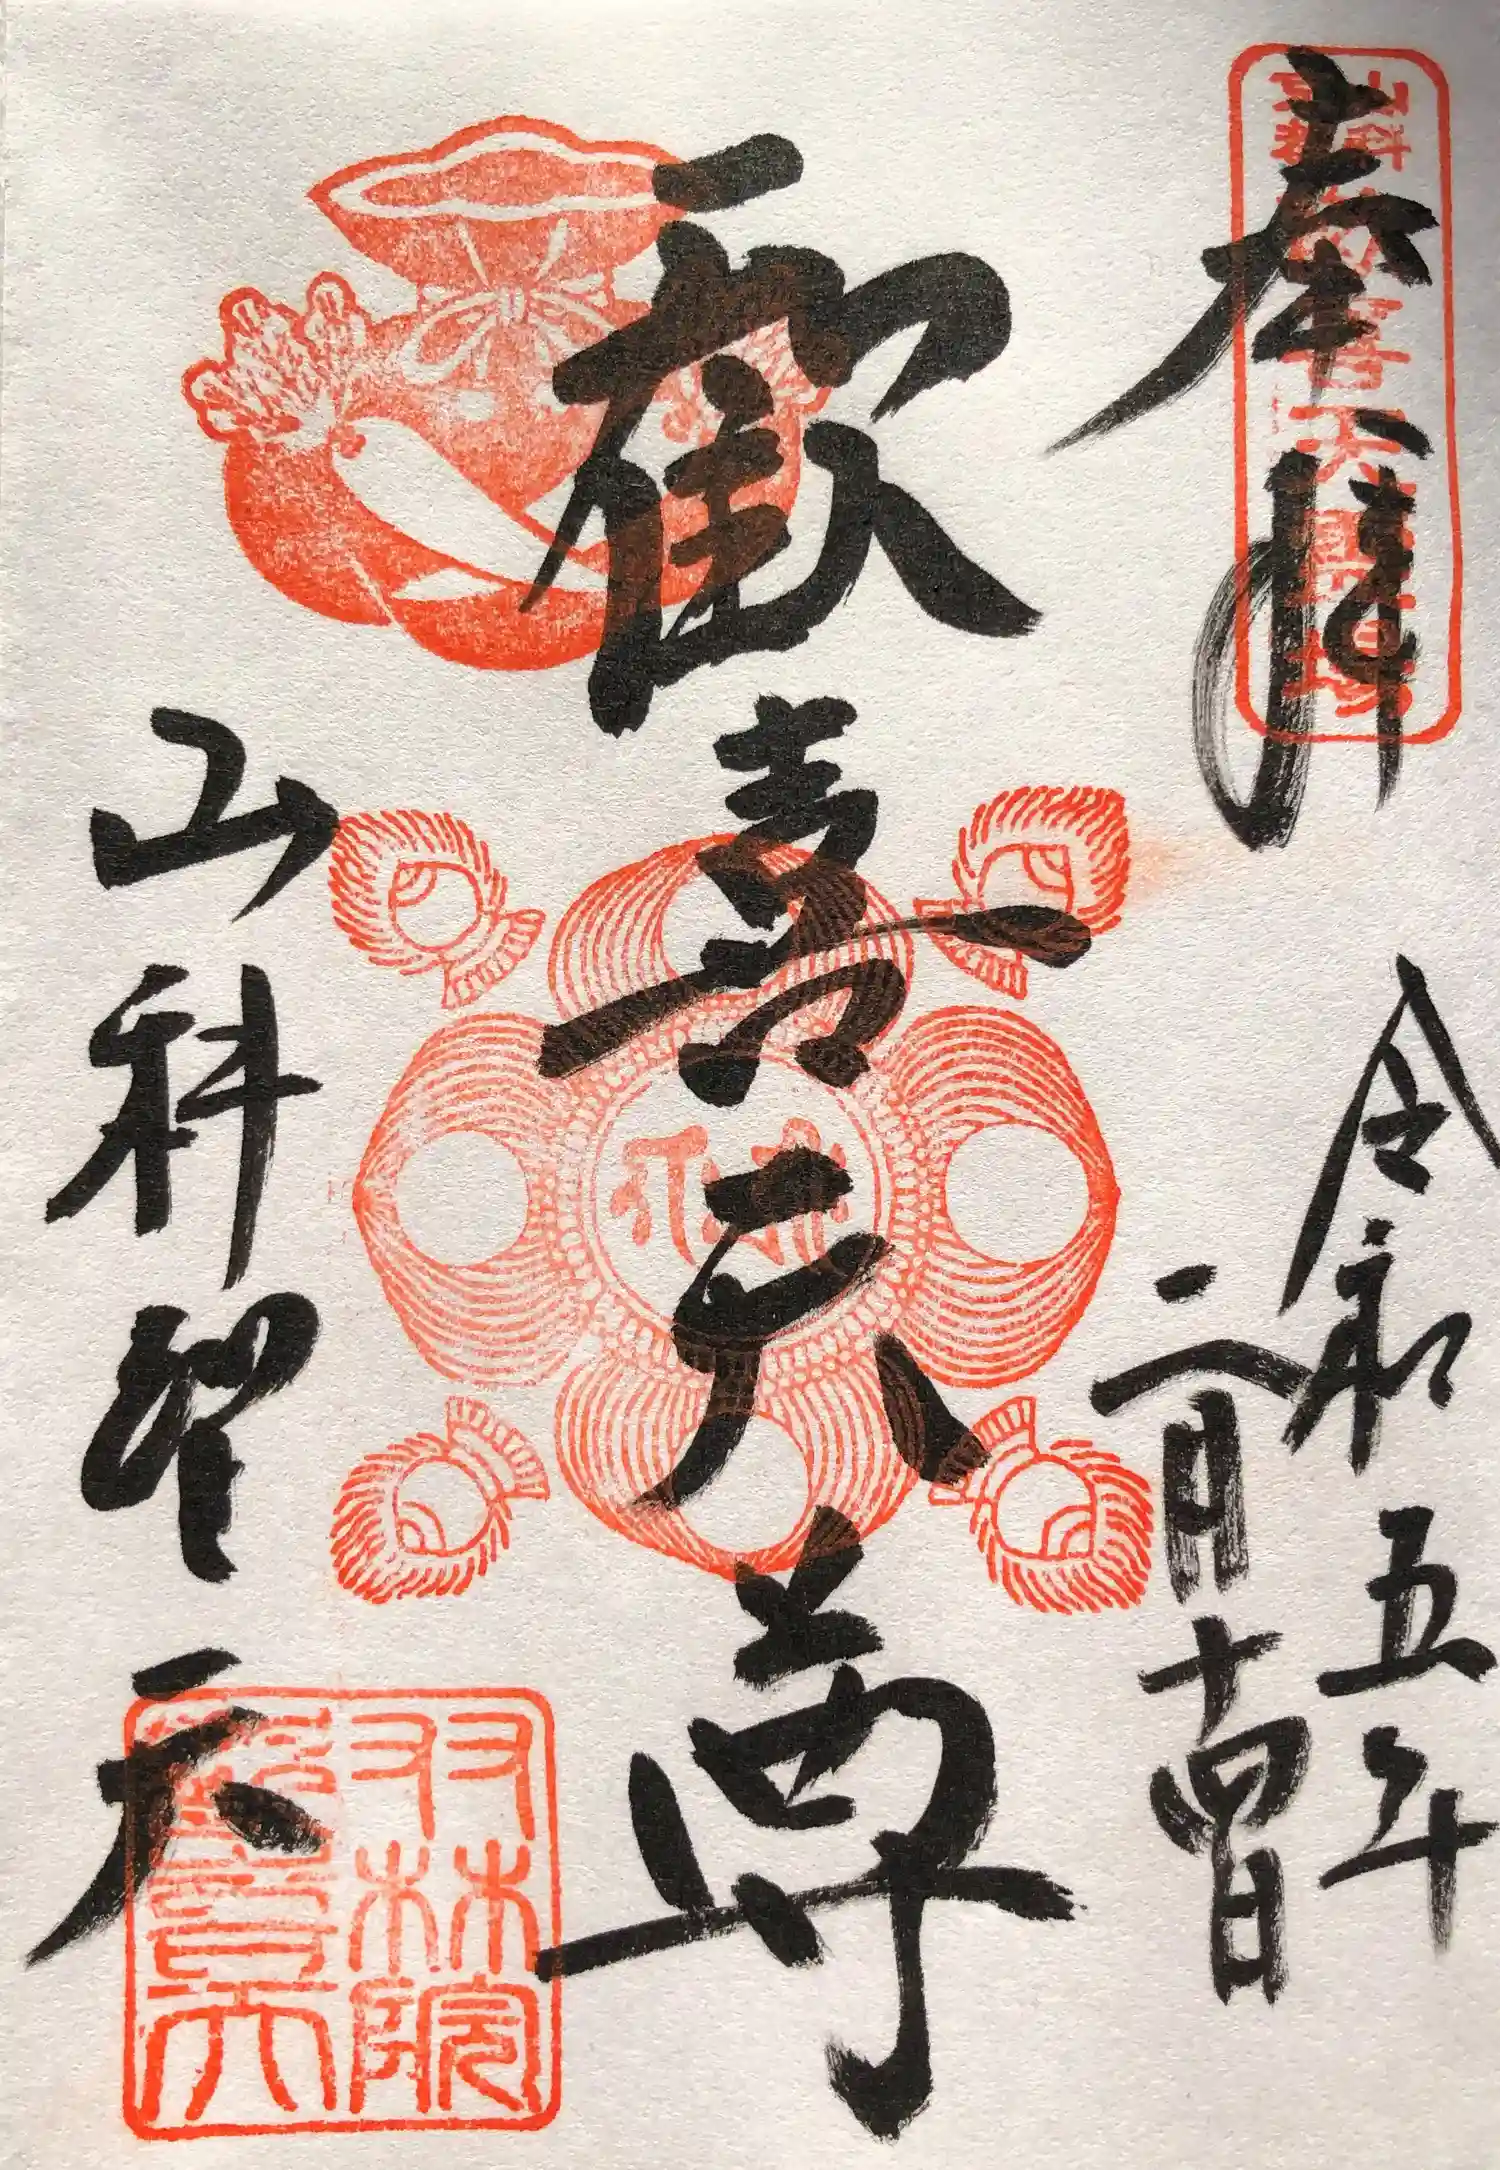 奉拝
令和五年
二月十四日
歓喜天尊
山科聖天
双林院
歓喜天